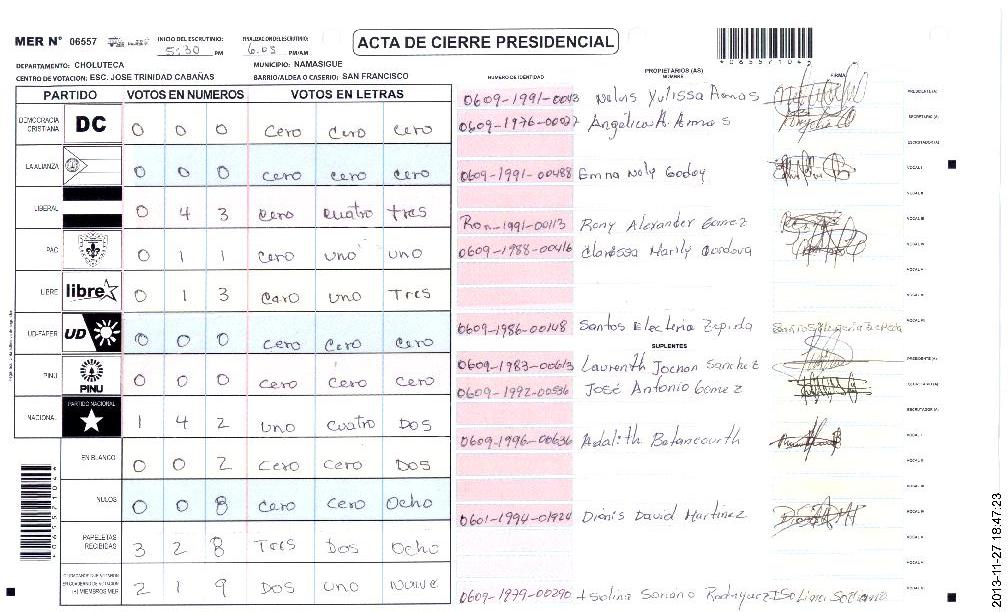 MER N° 06557
INICIO DEL ESCRUTINIO: 5:30 PM
FINALIZACION DEL ESCRUTINIO: 6:05 PM/AM
ACTA DE CIERRE PRESIDENCIAL
DEPARTAMENTO: CHOLUTECA MUNICIPIO: NAMASIGUE
CENTRO DE VOTACION: ESC. JOSE TRINIDAD CABAÑAS BARRIO/ALDEA O CASERIO: SAN FRANCISCO
PARTIDO VOTOS EN NUMEROS VOTOS EN LETRAS
DEMOCRACIA CRISTIANA DC 0 0 0 cero cero cero
LA ALIANZA 0 0 0 cero cero cero
LIBERAL 0 4 3 cero cuatro tres
PAC 0 1 1 cero uno uno
LIBRE libre 0 1 3 caro uno Tres
UD-FAPER UD 0 0 0 cero cero cero
PINU PINU 0 0 0 cero cero cero
NACIONAL PARTIDO NACIONAL 1 4 2 uno cuatro Dos
EN BLANCO 0 0 2 cero cero Dos
NULOS 0 0 8 caro cero Ocho
PAPELETAS RECIBIDAS 3 2 8 Tres Dos Ocho
CIUDADANOS QUE VOTARON EN CUADERNO DE VOTACION (+) MIEMBROS MER 2 1 9 Dos uno nueve
NUMERO DE IDENTIDAD PROPIETARIOS (AS) NOMBRE FIRMA
0609-1991-0013 Yulissa PRESIDENTE (A)
0609-1976-00027 Angélica A. Armas SECRETARIO (A)
ESCRUTADOR (A)
0609-1991-00488 Emna Noly Godoy VOCAL I
VOCAL II
1991-00113 Rony Alexander Gomez VOCAL III
0609-1988-00416 Clarissa Marily Cordova VOCAL IV
VOCAL V
0609-1986-00148 Santos Electeria Zepida
SUPLENTES
0609-1983-00613 Laurenth Jocnan Sanchez PRESIDENTE (A)
0609-1992-00536 José Antonio Gomez SECRETARIO (A)
ESCRUTADOR (A)
0609-1996-00636 Adalith Betancourth VOCAL I
VOCAL II
0601-1994-01924 Dionis David Martinez
Soriano Rodriguez
4065571045
2013-11-27 18:47:23